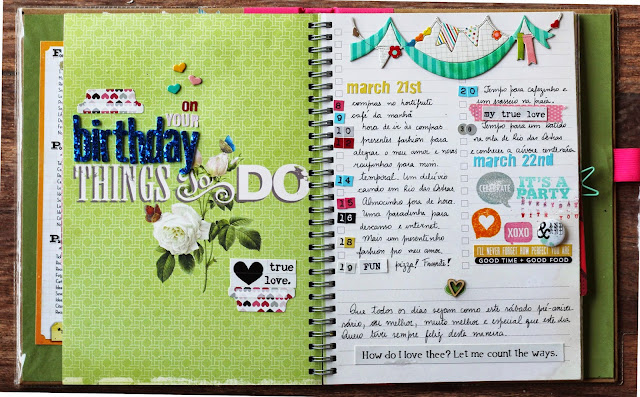 on
YOUR
birthday
THINGS
to
DO
true
love.
march 21st
8 compras no hortifruti
9 café da manhã
10 hora de ir às compras
12 presentes fashion para
alegrar o meu amor e novas
roupinhas para mim.
14 temporal. Um dilúvio
caindo em Rio das Ostras
15 Almocinho fora de hora.
16 Uma paradinha para
descanso e internet.
18 Mais um presentinho
fashion pro meu amor.
19 FUN pizza! Favorite!
20 Tempo para cafezinho e
um passeio na praia.
my true love
Tempo para um
na orla de Rio das Ostras
e conhecer a árvore centenária
march 22nd
CELEBRATE
IT'S A
PARTY
BIRTHDAY
WITH
YOU
XOXO
&
I'LL NEVER FORGET HOW PERFECT YOU ARE
GOOD TIME + GOOD FOOD
Que todos os dias sejam como este sábado pré-aniver
sário, ou melhor, muito melhor e especial que este dia.
Quero ser sempre feliz desta maneira.
How do I love thee? Let me count the ways.